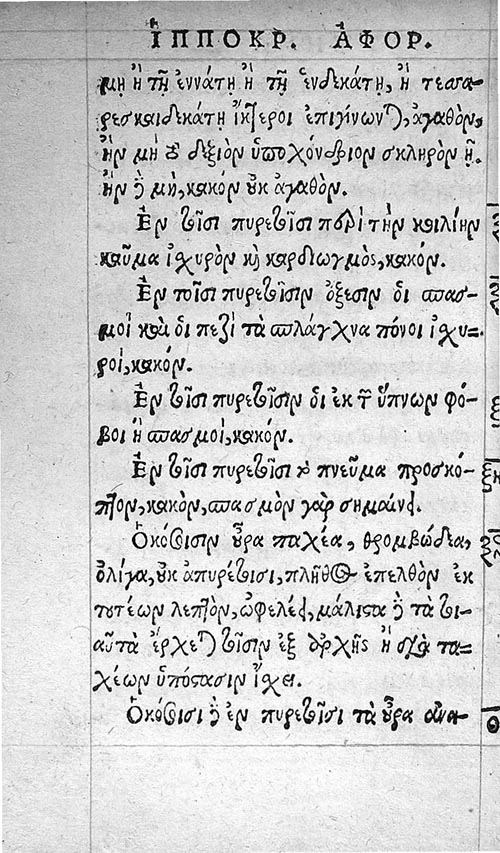 ἹΠΠΟΚΡ. ἈΦΟΡ.
μῃ ἢ τῇ ἐννάτῃ ἢ τῇ ἑνδεκάτῃ, ἢ τεσσα-
ρεσκαιδεκάτῃ ἴκτεροι ἐπιγίνωνται, ἀγαθὸν,
ἢν μὴ τὸ δεξιὸν ὑποχόνδριον σκληρὸν ᾖ.
ἢν δὲ μὴ, κακόν οὐκ ἀγαθὸν.
Ἐν τοῖσι πυρετοῖσι περὶ τὴν κοιλίην
καῦμα ἰχυρὸν καὶ καρδιωγμὸς, κακόν.
Ἐν τοῖσι πυρετοῖσιν ὀξέσιν οἱ σπασ-
μοὶ καὶ οἱ περὶ τὰ σπλάγχνα πόνοι ἰχυ-
ροὶ, κακόν.
Ἐν τοῖσι πυρετοῖσιν οἱ ἐκ τῶν ὕπνων φό-
βοι ἢ σπασμοὶ, κακόν.
Ἐν τοῖσι πυρετοῖσι τὸ πνεῦμα προσκό-
πτον, κακὸν, σπασμὸν γὰρ σημαίνει.
Ὁκόσοισιν οὖρα παχέα, θρομβώδεα,
ὀλίγα, οὐκ ἀπυρέτοισι, πλῆθος ἐπελθὸν ἐκ
τουτέων λεπτὸν, ὠφελέει, μάλιστα δὲ τὰ τοι-
αῦτα ἔρχεται τοῖσιν ἐξ ἀρχῆς ἢ διὰ τα-
χέων ὑπόστασιν ἴχει.
Ὁκόσοισι δὲ ἐν πυρετοῖσι τὰ οὖρα ἀνα-